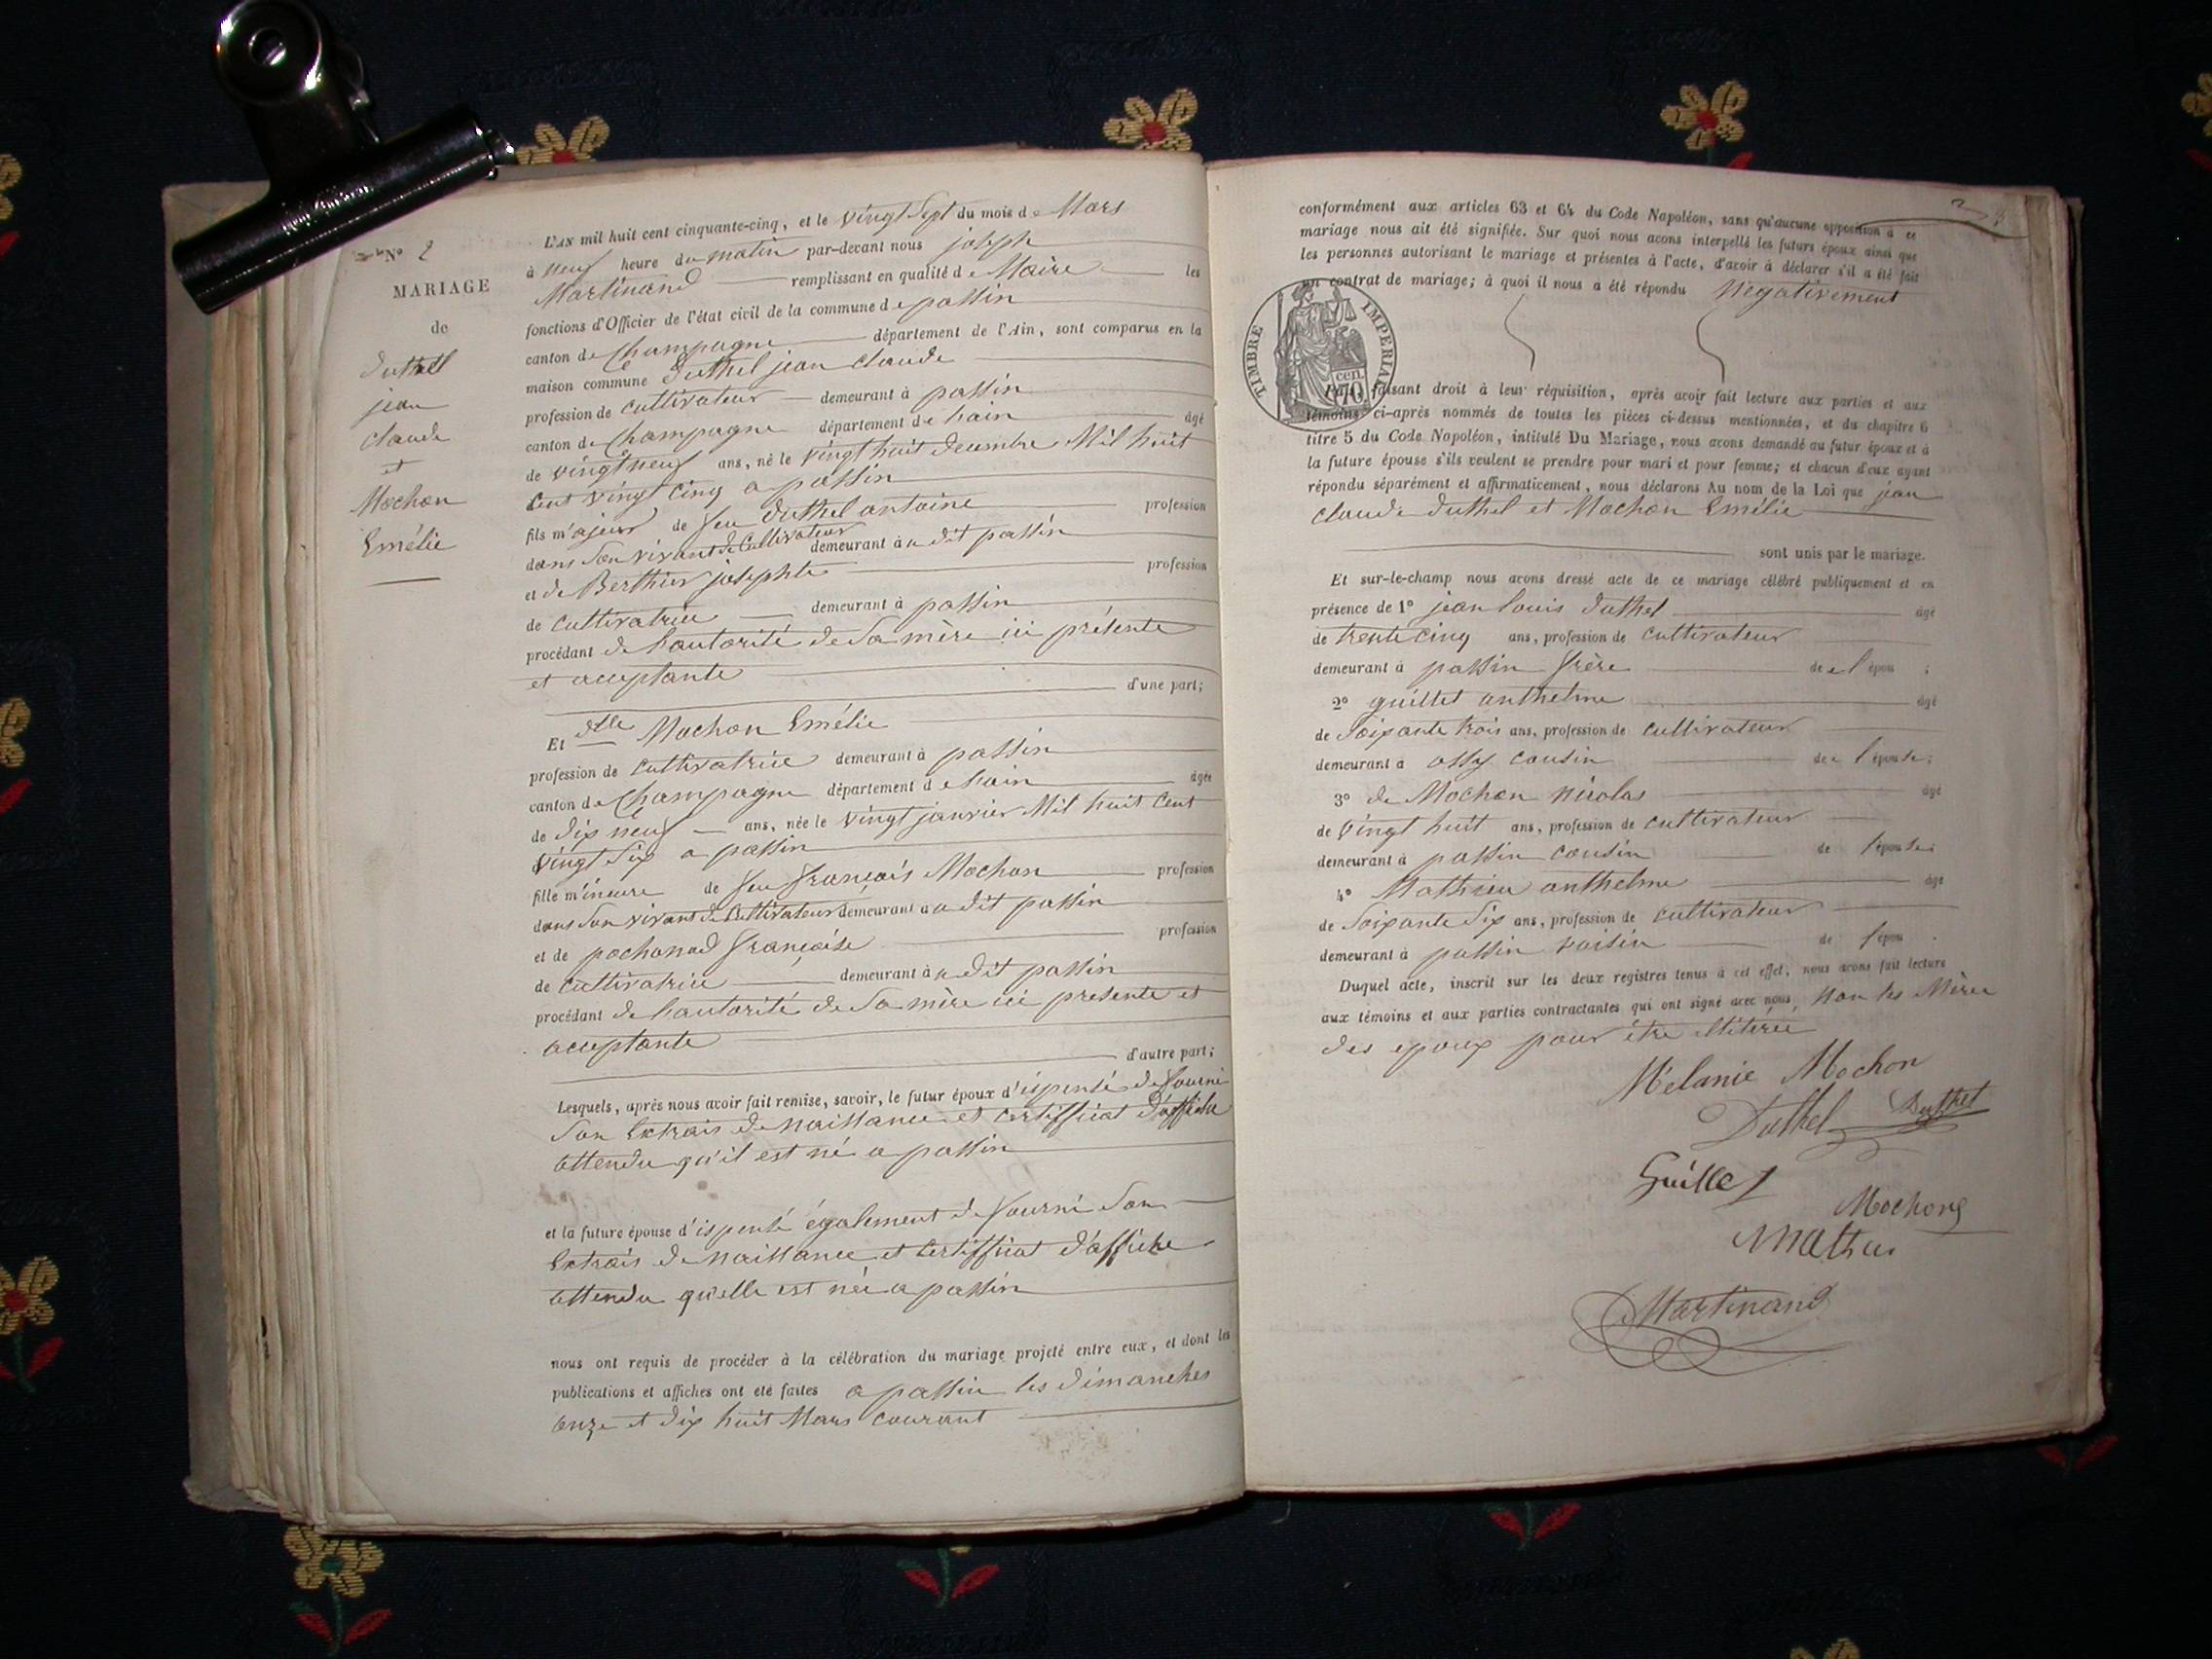 N° 2
MARIAGE
de
Duthel
jean
claude
et
Mochon
Emélie
L'AN mil huit cent cinquante-cinq, et le vingt Sept du mois de Mars
à neuf heure du matin par-devant nous joseph
Martinand remplissant en qualité de Maire les
fonctions d'Officier de l'état civil de la commune de passin
canton de Champagne département de l'Ain, sont comparus en la
maison commune Duthel jean claude
profession de cultivateur demeurant à passin
canton de Champagne département de hain âgé
de vingt neuf ans, né le vingt huit decembre Mil huit
Cent vingt Cinq a passin
fils majeur de feu Duthel antoine profession
dans Son vivant de Cultivateur demeurant à u dit passin
et de Berthier josephte profession
de cultivatrice demeurant à passin
procédant de hautorité de Sa mère ici présente
et acceptante
d'une part;
Et dlle Mochon Emélie
profession de cultivatrice demeurant à passin
canton de Champagne département de hain âgée
de dix neuf ans, née le vingt janvier Mil huit Cent
vingt Six a passin
fille m'ineure de feu françois Mochon profession
dans Son vivant de Cultivateur demeurant a u dit passin
et de pochonod françoise profession
de cultivatrice demeurant à u dit passin
procédant de hautorité de Sa mère ici presente et
acceptante
d'autre part;
Lesquels, après nous avoir fait remise, savoir, le futur époux d'ispensé de fourni
Son Extrais de naissance et certifficat d'affiche
attendu qu'il est né a passin
et la future épouse d'ispensé également de fourni Son
Extrais de naissance et Certifficat d'affiche
attendu qu'elle est née a passin
nous ont requis de procéder à la célébration du mariage projeté entre eux, et dont les
publications et affiches ont été faites a passin les dimanches
onze et dix huit Mars courant
conformément aux articles 63 et 64 du Code Napoléon, sans qu'aucune opposition à ce
mariage nous ait été signifiée. Sur quoi nous avons interpellé les futurs époux ainsi que
les personnes autorisant le mariage et présentes à l'acte, d'avoir à déclarer s'il a été fait
un contrat de mariage; à quoi il nous a été répondu Négativement
TIMBRE IMPERIAL
cen.
70
faisant droit à leur réquisition, après avoir fait lecture aux parties et aux
témoins ci-après nommés de toutes les pièces ci-dessus mentionnées, et du chapitre 6
titre 5 du Code Napoléon, intitulé Du Mariage, nous avons demandé au futur époux et à
la future épouse s'ils veulent se prendre pour mari et pour femme; et chacun d'eux ayant
répondu séparément et affirmativement, nous déclarons Au nom de la Loi que jean
claude Duthel et Mochon Emélie
sont unis par le mariage.
Et sur-le-champ nous avons dressé acte de ce mariage célébré publiquement et en
présence de 1° jean louis Duthel âgé
de trente cinq ans, profession de cultivateur
demeurant à passin frère de l'épou ;
2° guillet anthelme âgé
de Soixante trois ans, profession de cultivateur
demeurant à ossy cousin de l'épouse;
3° de Mochon nicolas âgé
de vingt huit ans, profession de cultivateur
demeurant à passin cousin de l'épouse;
4° Mathieu anthelme âgé
de Soixante Six ans, profession de cultivateur
demeurant à passin voisin de l'épou .
Duquel acte, inscrit sur les deux registres tenus à cet effet, nous avons fait lecture
aux témoins et aux parties contractantes qui ont signé avec nous, Non les Mères
des epoux pour être illitérée
Mélanie Mochon
Duthel Duthel
Guillet
Mochon
Mathieu
Martinand